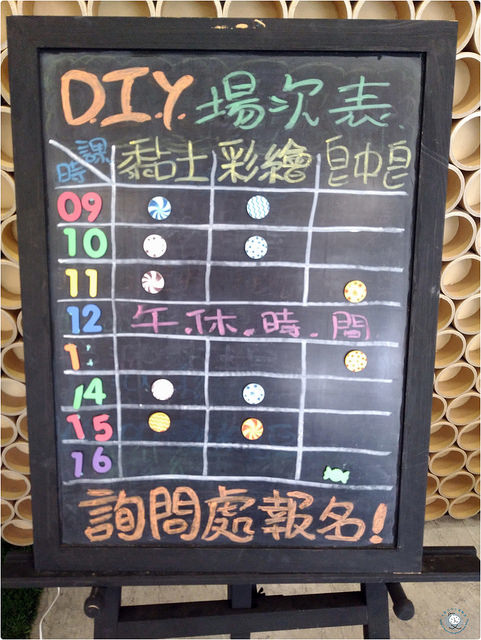 D.I.Y. 場次表
課 時 黏土 彩繪 皂中皂
09
10
11
12 午.休.時.間
1
14
15
16
詢問處報名!